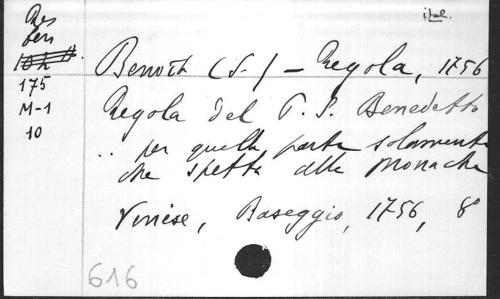 ital.
Res
1042
175
M-1
10
Benoît (S.) – Regola, 1756
Regola del P. S. Benedetto
.. per quella parte solamente
che spetta alle monache
Venise, Baseggio, 1756, 8°
616